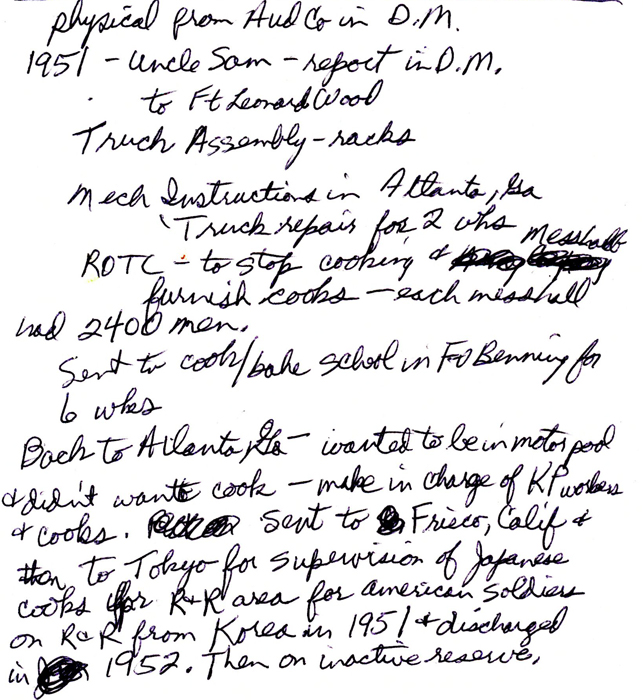 physical from Aud Co in D.M.
1951 - Uncle Sam - report in D.M.
to Ft Leonard Wood
Truck Assembly - racks
Mech Instructions in Atlanta, Ga
Truck repair for 2 whs
messhall
ROTC - to stop cooking &
furnish cooks - each messhall
had 2400 men.
Sent to cook/bake school in Ft Benning for
6 whs
Back to Atlanta, Ga - wanted to be in motor pool
& didn't want to cook - make in charge of KP workers
& cooks. Sent to Frisco, Calif &
then to Tokyo for supervision of Japanese
cooks for R+R area for American soldiers
on R&R from Korea in 1951 & discharged
in 1952. Then on inactive reserve.